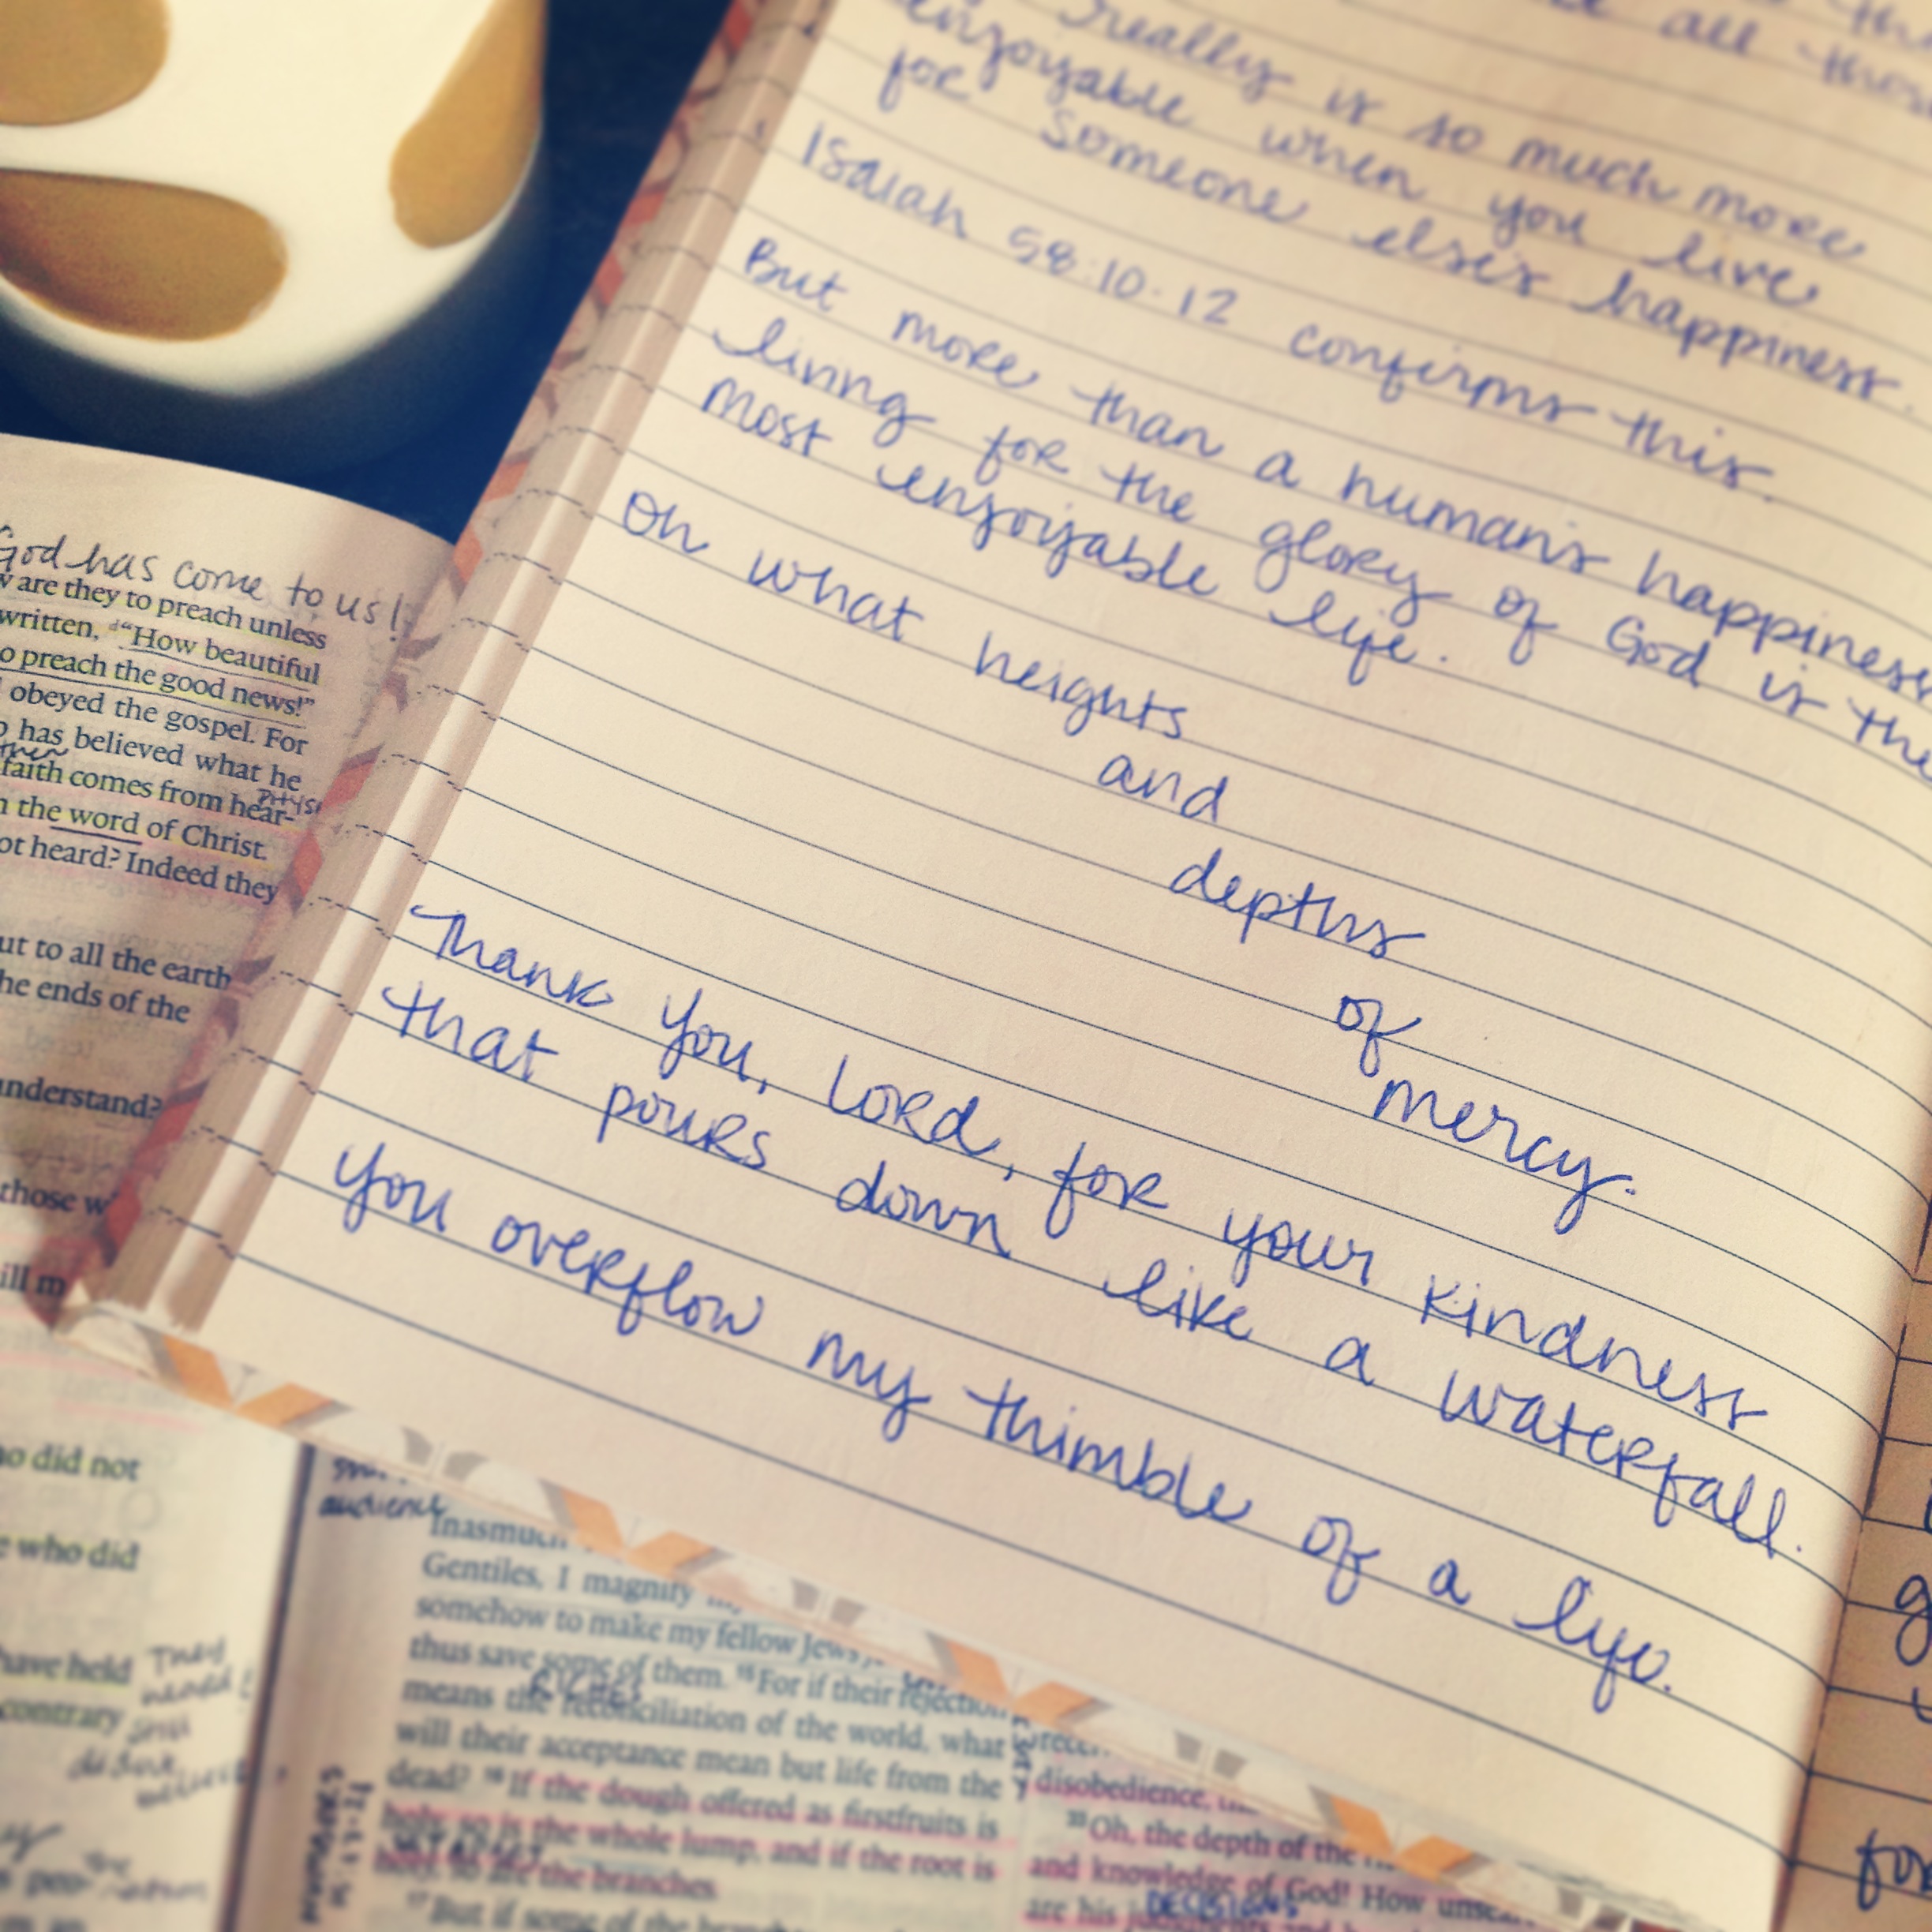 all
really is so much more
enjoyable when you live
for someone else's happiness.
Isaiah 58:10-12 confirms this.
But more than a human's happiness
living for the glory of God is the
most enjoyable life.
Oh what heights
and
depths
of
mercy.
Thank you, Lord, for your kindness
that pours down like a waterfall.
You overflow my thimble of a life.
God has come to us!
are they to preach unless
written, "How beautiful
preach the good news!"
obeyed the gospel. For
has believed what he
faith comes from hear-
the word of Christ.
heard? Indeed they
to all the earth
the ends of the
understand?
those
did not
who did
have held
contrary
They
heard!
still
didn't
believe
audience
Inasmuch
Gentiles, I magnify
somehow to make my fellow Jews
thus save some of them. 15 For if their rejection
RICHES
means the reconciliation of the world, what
will their acceptance mean but life from the
dead? 16 If the dough offered as firstfruits is
holy, so is the whole lump, and if the root is
holy, so are the branches.
17 But if some of the branches
disobedience,
33 Oh, the depth of the
and knowledge of God! How
DECISIONS
are his judgments and
for